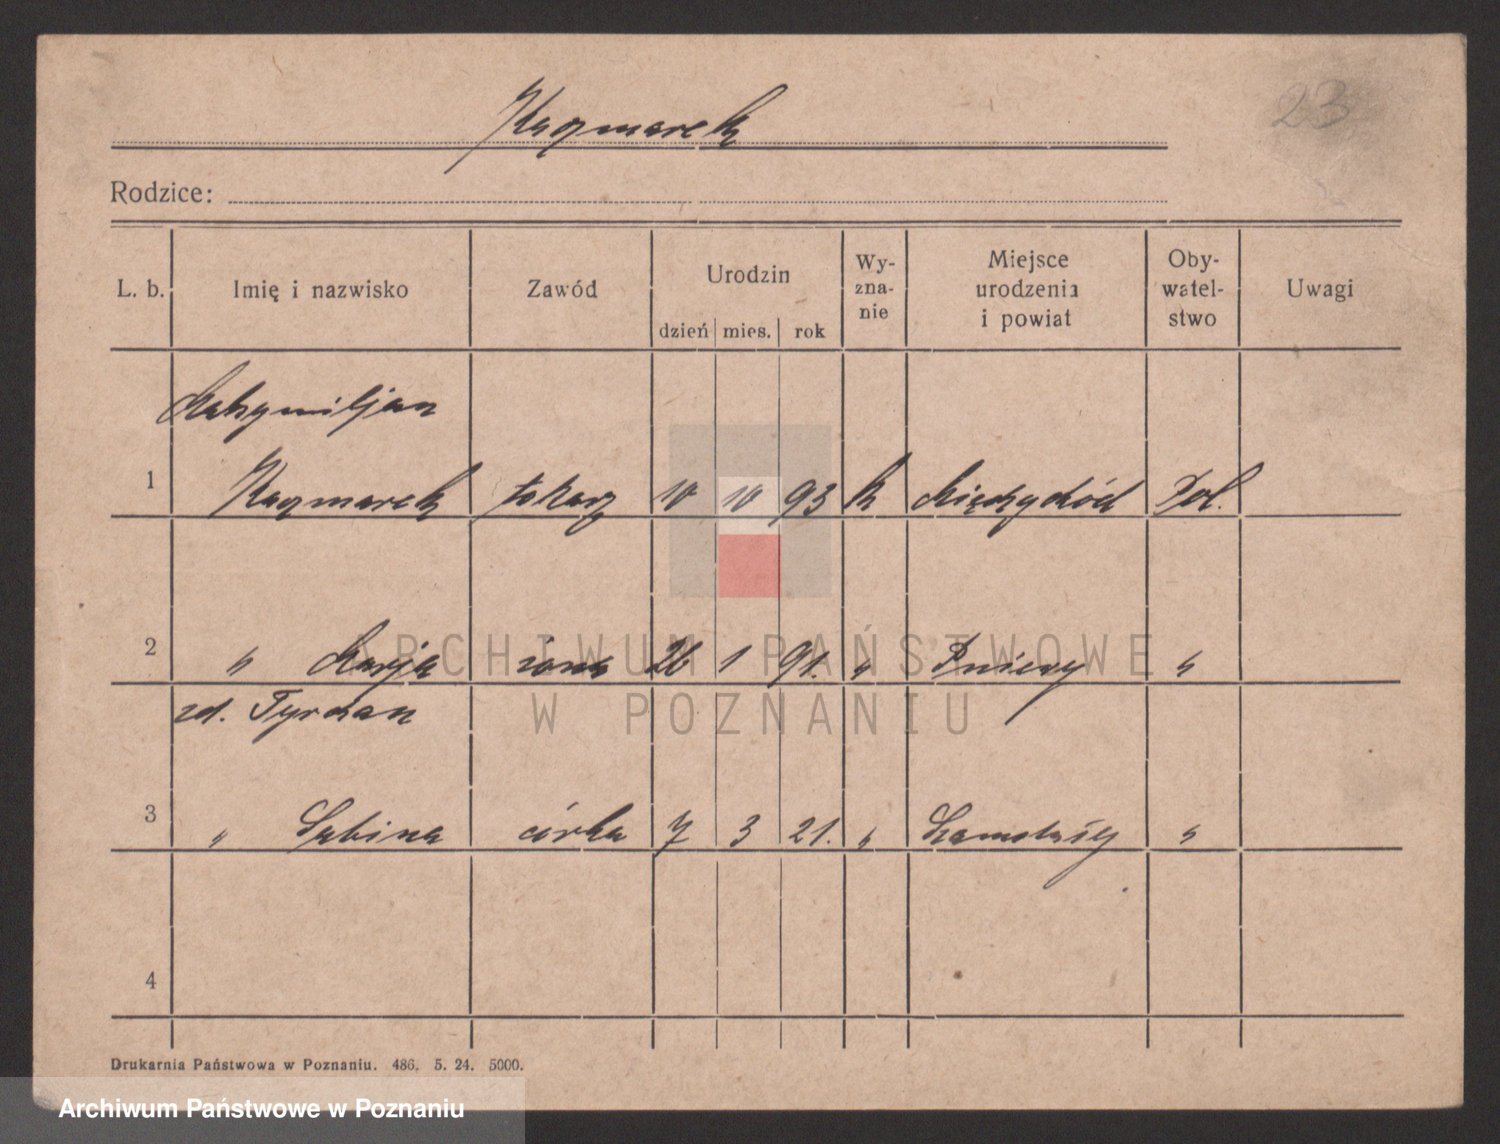 23
Kaczmarek
Rodzice:
L. b. Imię i nazwisko Zawód Urodzin dzień mies. rok Wy-zna-nie Miejsce urodzenia i powiat Oby-watel-stwo Uwagi
Maksymiljan
1 Kaczmarek tokarz 10 10 93 k Międzychód Pol.
2 " Marja żona 26 1 91. " Pniewy "
zd. Tyrdan
3 " Sabina córka 7 3 21. " "
4
ARCHIWUM PAŃSTWOWE
W POZNANIU
Drukarnia Państwowa w Poznaniu. 486. 5. 24. 5000.
Archiwum Państwowe w Poznaniu